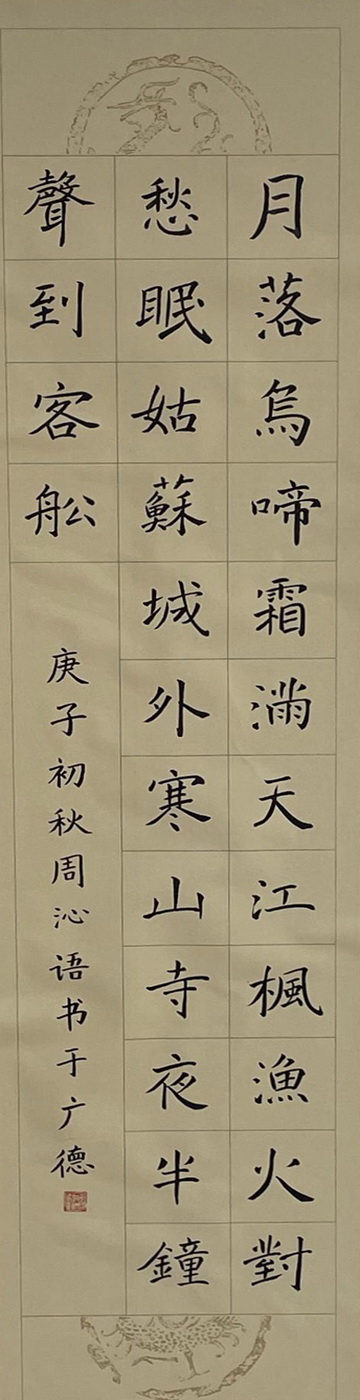 月落烏啼霜滿天江楓漁火對
愁眠姑蘇城外寒山寺夜半鐘
聲到客舩
庚子初秋周沁语书于广德